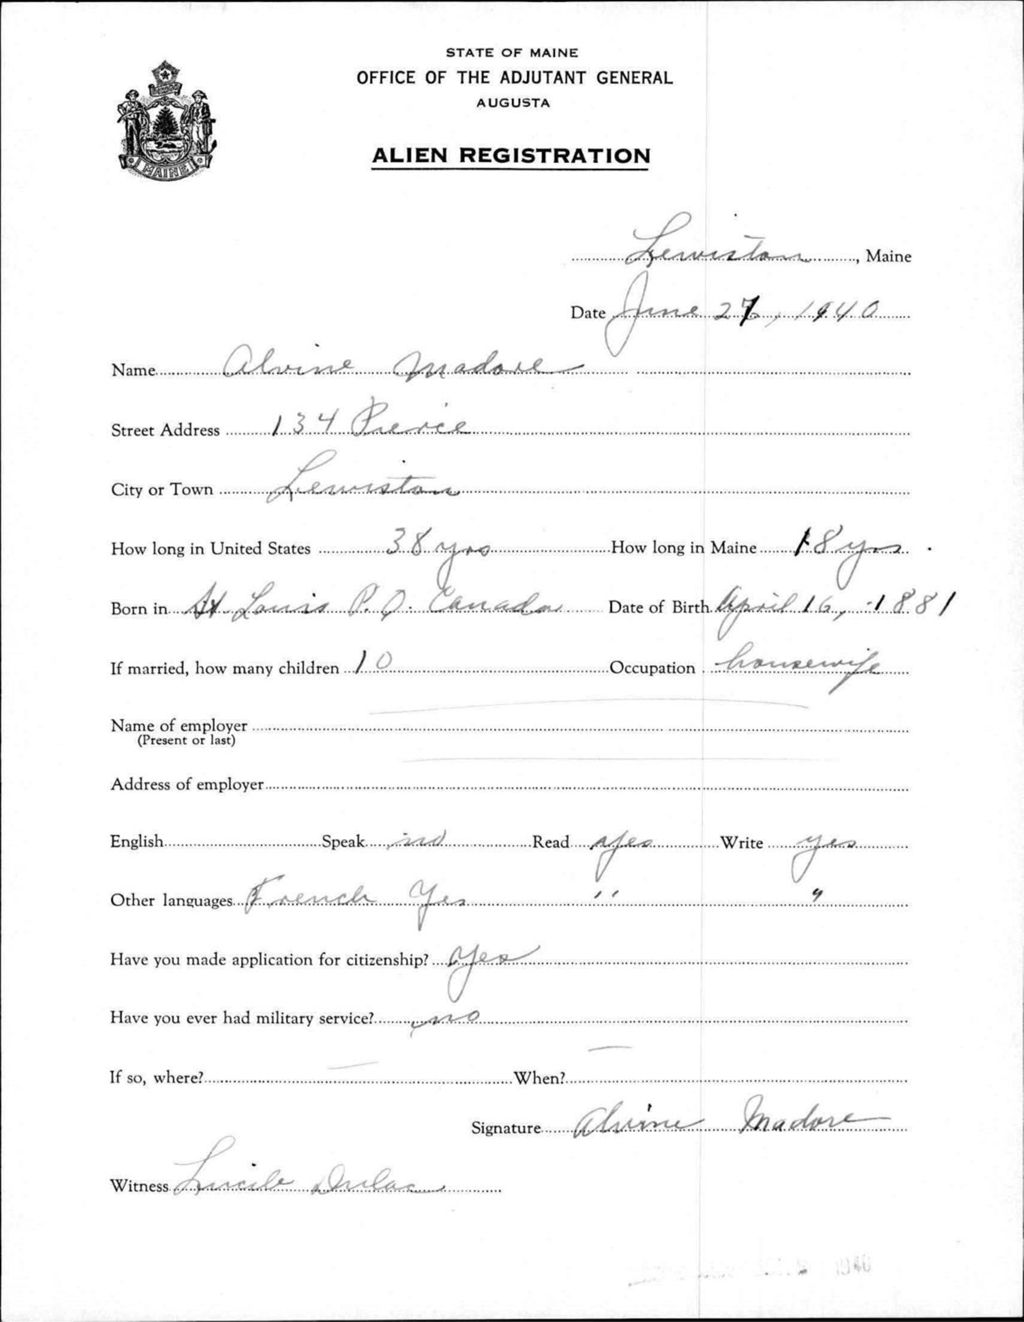 STATE OF MAINE
OFFICE OF THE ADJUTANT GENERAL
AUGUSTA
ALIEN REGISTRATION
MAINE
Lewiston, Maine
Date June 27, 1940
Name Alvine Madore
Street Address 134 Pierce
City or Town Lewiston
How long in United States 38 yrs How long in Maine 18 yrs.
Born in St Louis P.Q. Canada Date of Birth April 16, 1881
If married, how many children 10 Occupation housewife
Name of employer
(Present or last)
Address of employer
English Speak no Read yes Write yes
Other languages French Yes " "
Have you made application for citizenship? Yes
Have you ever had military service? no
If so, where? — When? —
Signature Alvine Madore
Witness Lucile Dulac
1940